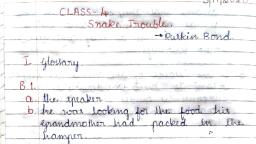 CLASS-4
Snake Trouble
→ Ruskin Bond
I. Glossary
B.1.
a the speaker
b. he was looking for the food his
grandmother had packed in the
hamper.